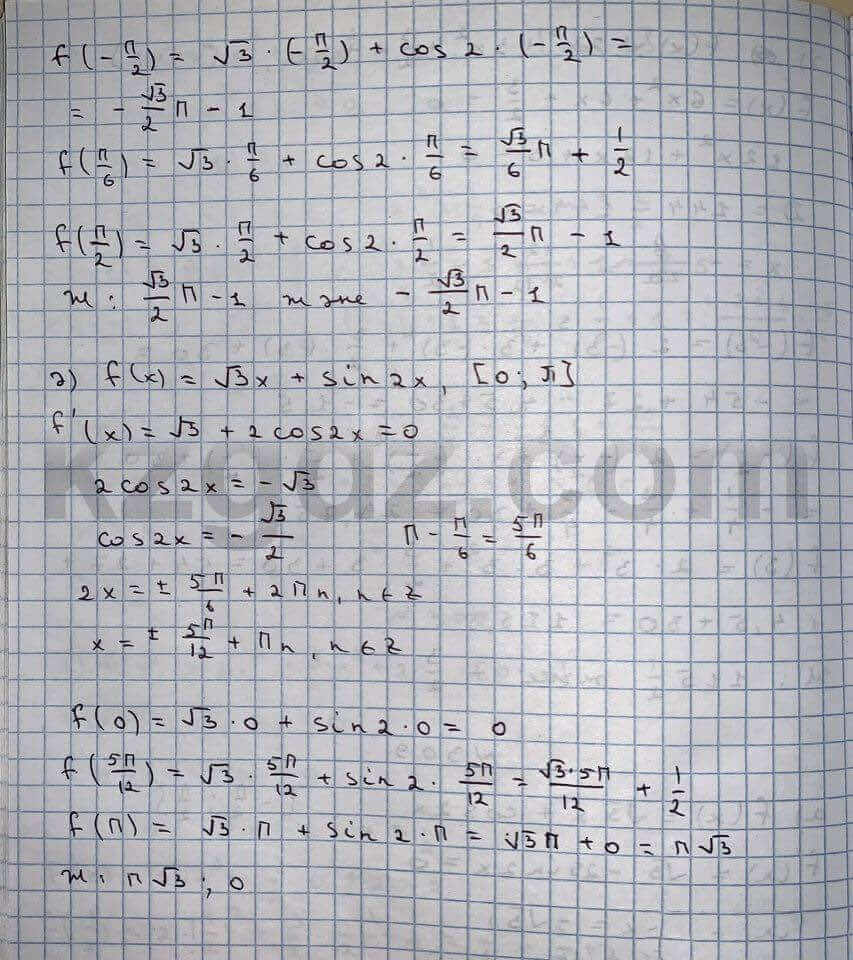 f(-π/2) = √3 · (-π/2) + cos 2 · (-π/2) =
= - √3/2 π - 1
f(π/6) = √3 · π/6 + cos 2 · π/6 = √3/6 π + 1/2
f(π/2) = √3 · π/2 + cos 2 · π/2 = √3/2 π - 1
ж: √3/2 π - 1 және - √3/2 π - 1
2) f(x) = √3x + sin 2x, [0; π]
f'(x) = √3 + 2 cos 2x = 0
2 cos 2x = - √3
cos 2x = - √3/2 π - π/6 = 5π/6
2x = ± 5π/6 + 2πn, n ∈ Z
x = ± 5π/12 + πn, n ∈ Z
f(0) = √3 · 0 + sin 2 · 0 = 0
f(5π/12) = √3 · 5π/12 + sin 2 · 5π/12 = √3·5π/12 + 1/2
f(π) = √3 · π + sin 2 · π = √3π + 0 = π√3
ж: π√3; 0
kzgdz.com